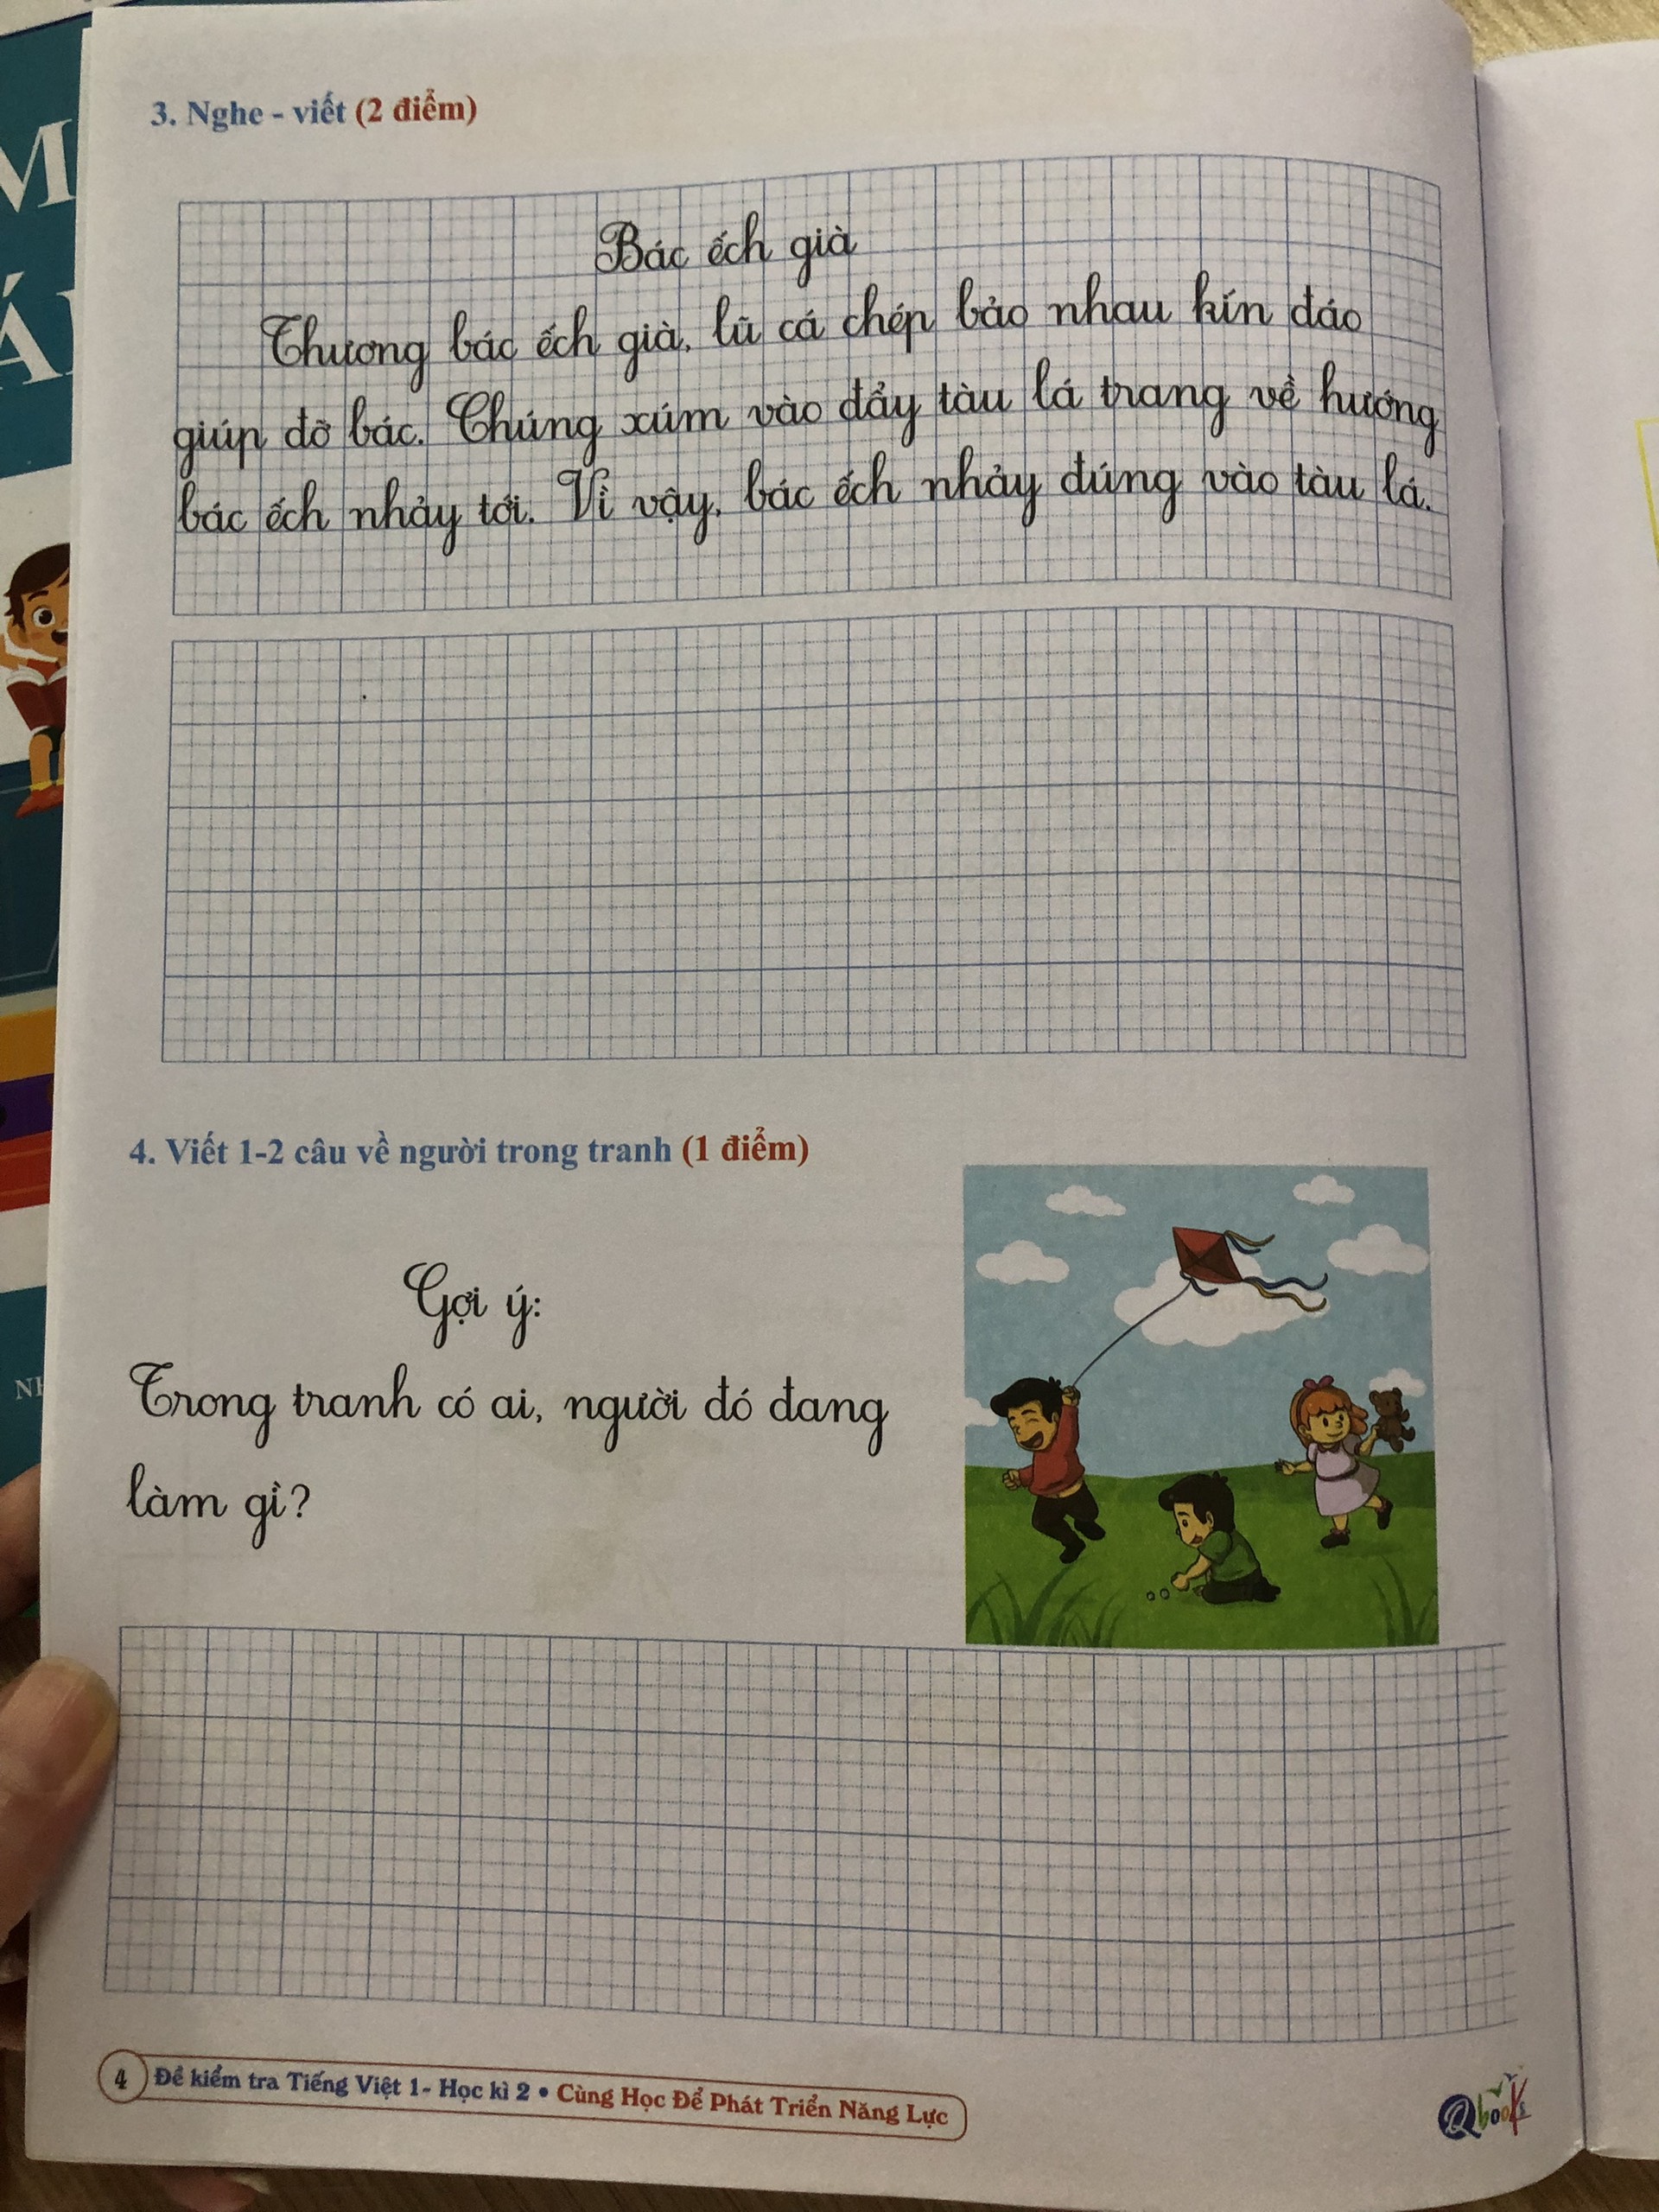 M
Á
3. Nghe - viết (2 điểm)
Bác ếch già
Thương bác ếch già, lũ cá chép bảo nhau kín đáo
giúp đỡ bác. Chúng xúm vào đẩy tàu lá trang về hướng
bác ếch nhảy tới. Vì vậy, bác ếch nhảy đúng vào tàu lá.
4. Viết 1-2 câu về người trong tranh (1 điểm)
Gợi ý:
Trong tranh có ai, người đó đang
làm gì?
4 Đề kiểm tra Tiếng Việt 1- Học kì 2 • Cùng Học Để Phát Triển Năng Lực
Qbooks